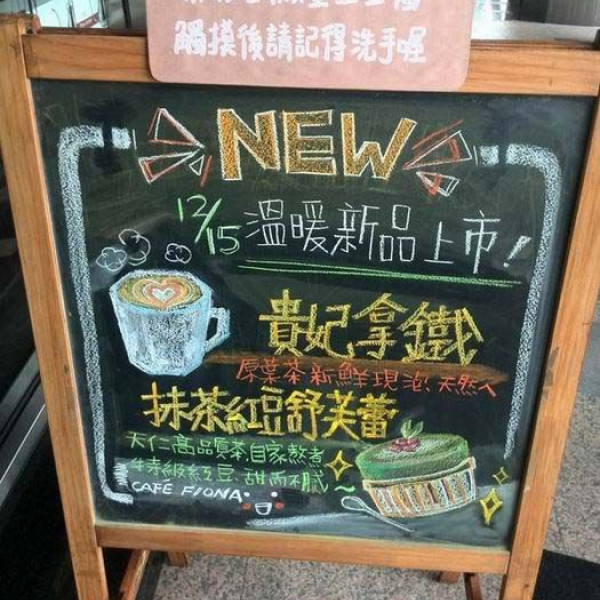 觸摸後請記得洗手喔
NEW
12/15 溫暖新品上市!
貴妃拿鐵
原葉茶新鮮現泡!天然へ
抹茶紅豆舒芙蕾
天仁高品質茶.自家熬煮
特級紅豆.甜而不膩~
CAFE FIONA